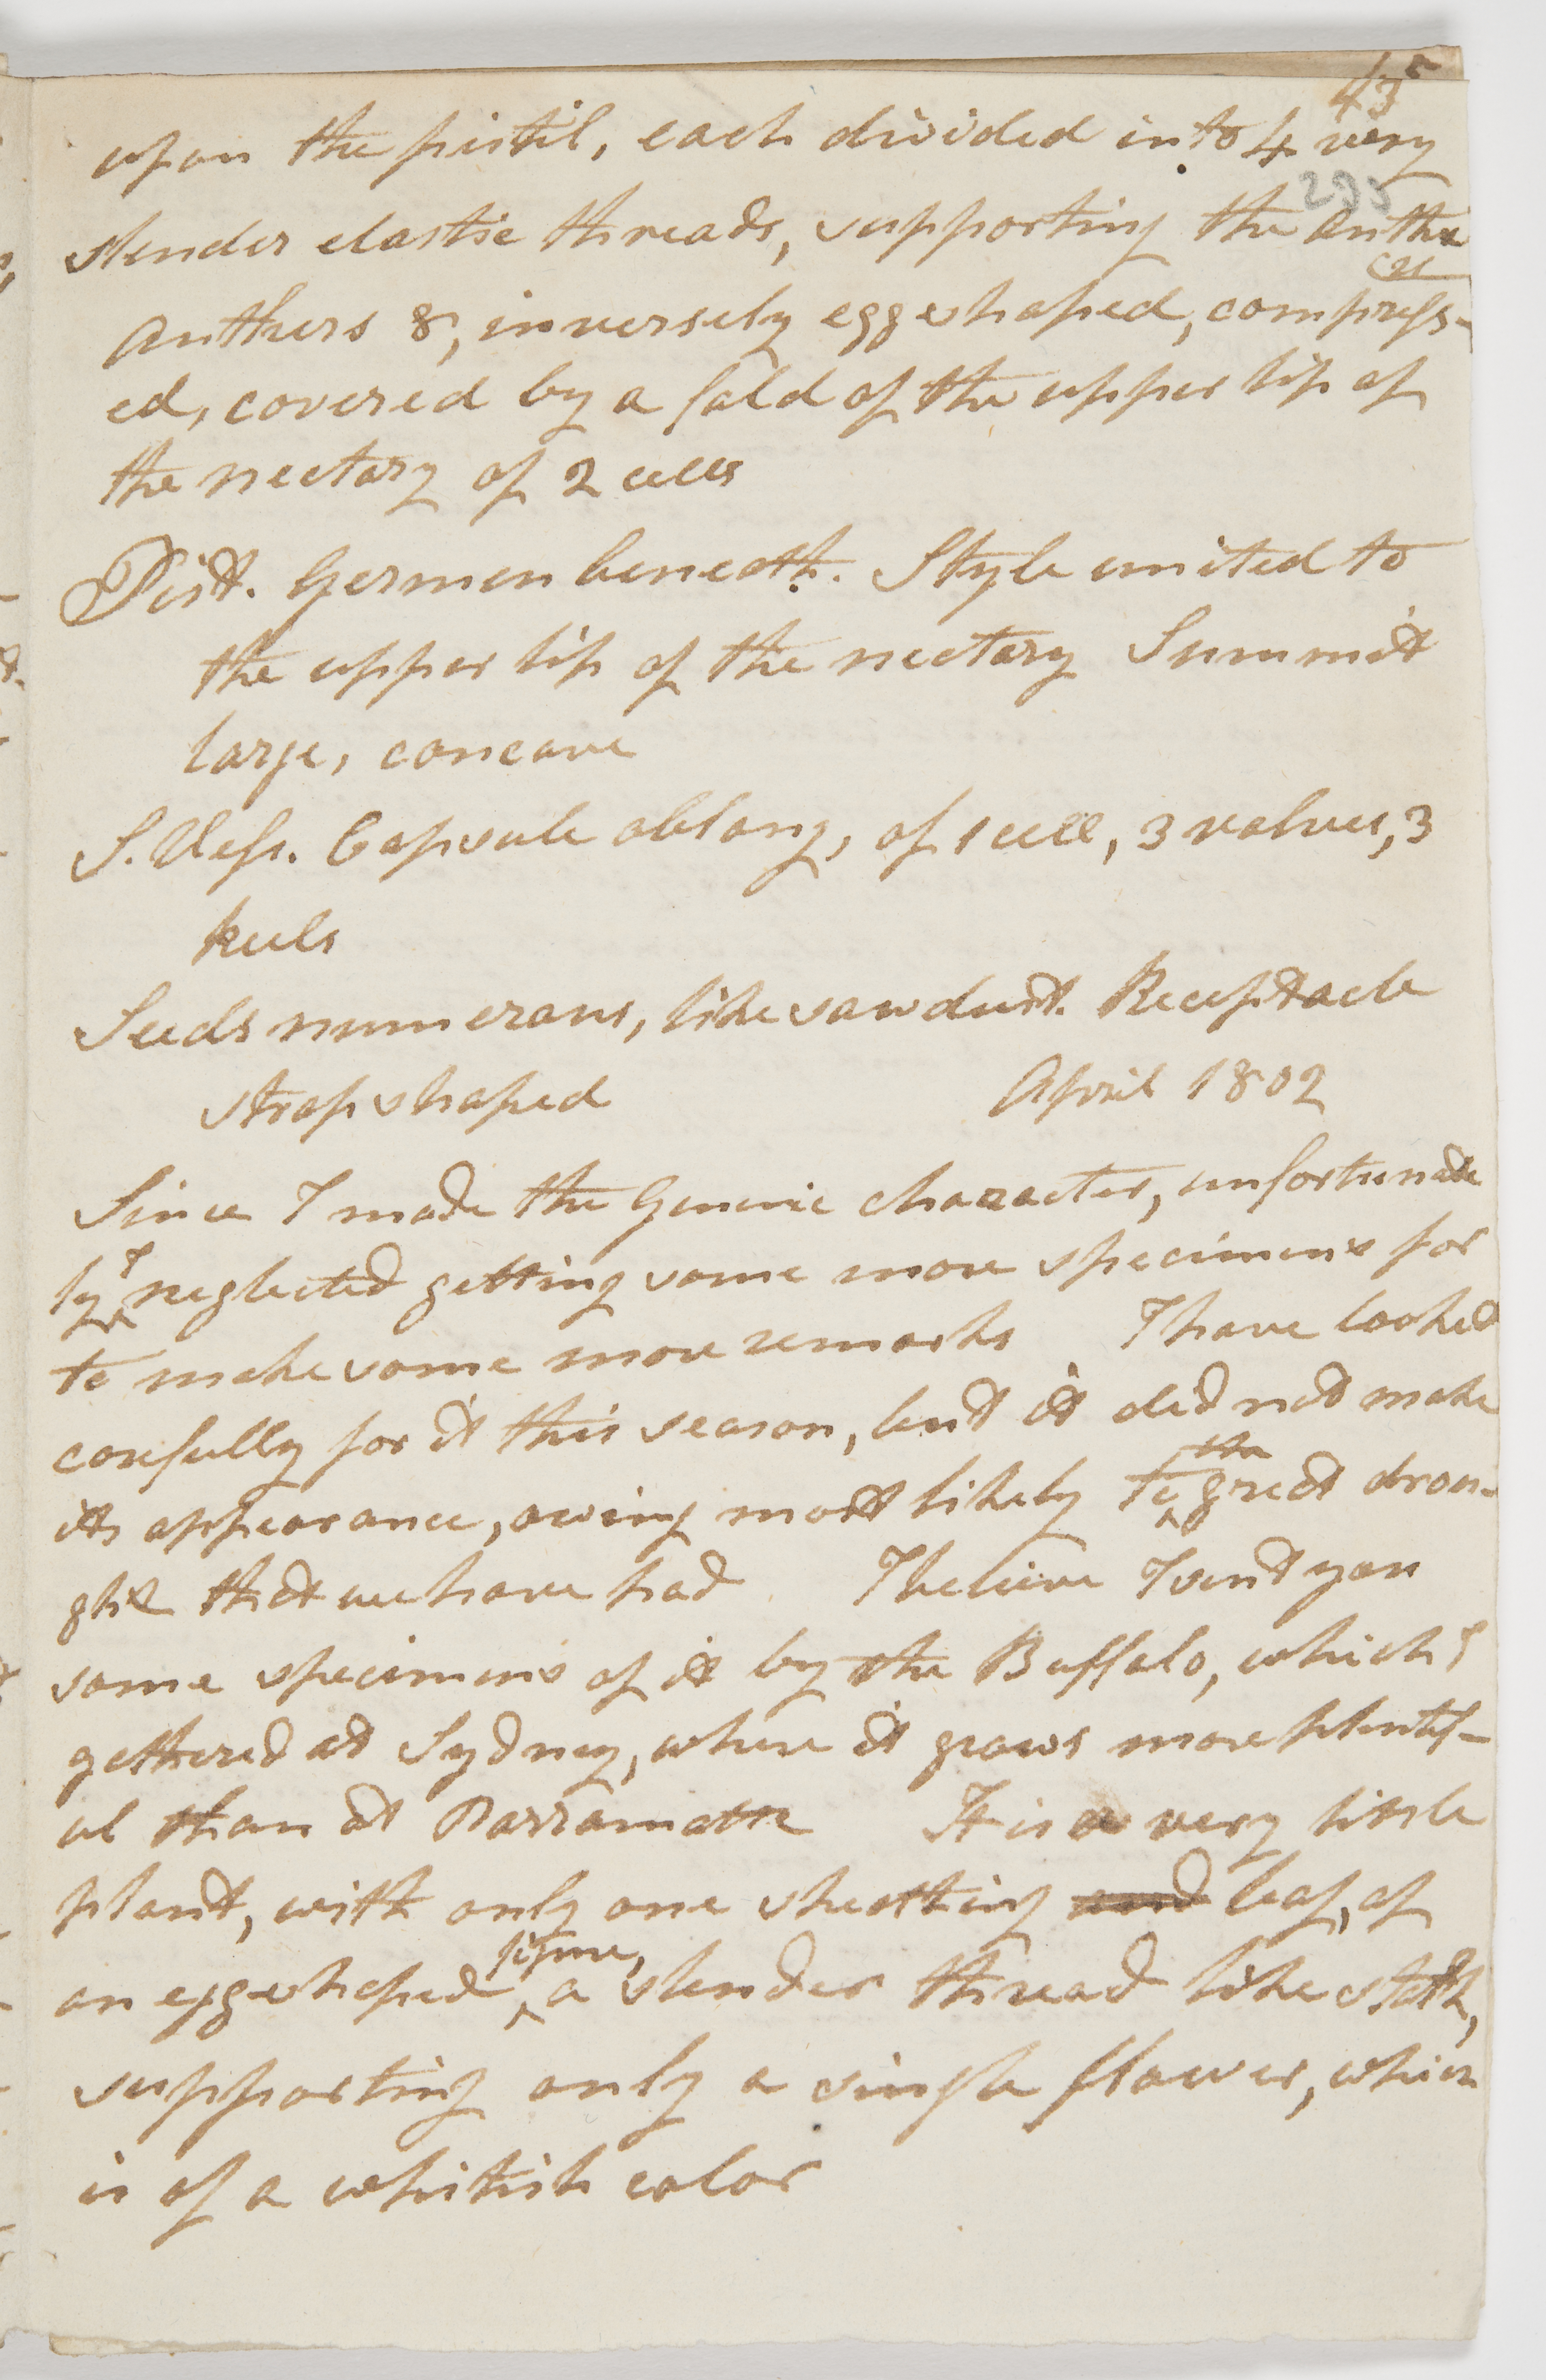 435
upon the pistil, each divided into 4 very
295
slender elastic threads, supporting the anthe
rs
Anthers 8, inversely eggshaped, compress-
ed, covered by a fold of the upper lip of
the nectary of 2 cells
Pist. Germen beneath. Style united to
the upper lip of the nectary Summit
large, concave
S. Vess. Capsule oblong, of 1 cell, 3 valves, 3
keels
Seeds numerous, like sawdust. Receptacle
strapshaped April 1802
Since I made the Generic character, unfortunate
ly I neglected getting some more specimens for
to make some more remarks I have looked
carefully for it this season, but it did not make
its appearance, owing most likely to the great drou-
ght that we have had I believe I sent you
some specimens of it by the Buffalo, which I
gathered at Sydney, where it grows more plentif-
ul than at Parramatta It is a very little
plant, with only one sheathing and leaf, of
an eggshaped figure, a slender thread like stalk,
supporting only a single flower, which
is of a whitish color